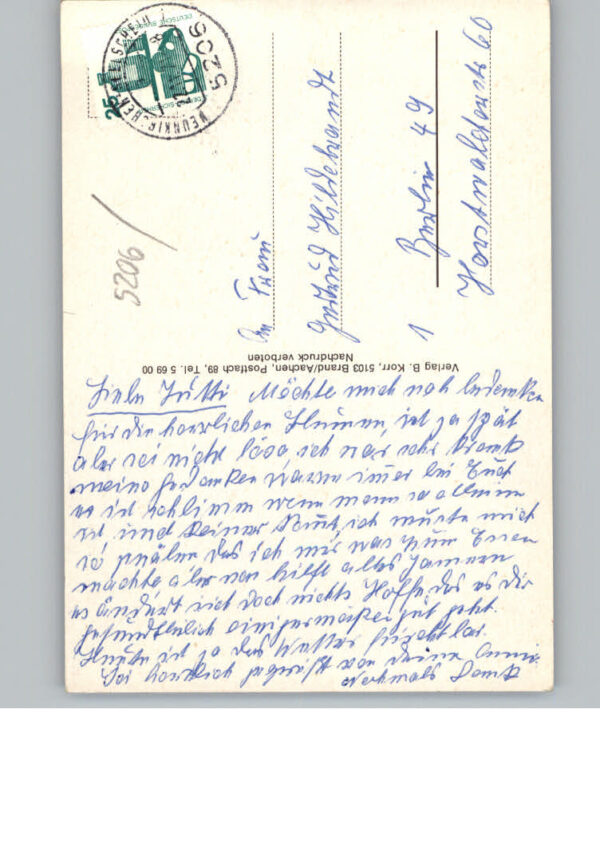 Liebe Jutti Möchte mich noh bedanken
für die herrlichen Blumen, ist ja spät
aber sei nicht böse ich war sehr krank
meine gedanken waren imer bei Euch
es ist schlimm wenn mann so alleine
ist und keiner komt, ich muste mich
so quälen das ich mir was zum Essen
machte aber was hilft alles Jamern
es ändert sich doch nichts Hoffe das es dir
gesundheitlich einigermaßen gut geht.
Heute ist ja das Wetter furchtbar.
Sei herzlich gegrüßt von deine Anni.
Nochmals Dank
Verlag B. Korr, 5103 Brand/Aachen, Postfach 89, Tel. 5 69 00
Nachdruck verboten
An Frau
Gertrud Hildebrandt
1 Berlin 49
Horstwalderstr 60
5206
5206
NEUNKIRCHEN-SEELSCHEID
25
DEUTSCHE BUNDESPOST